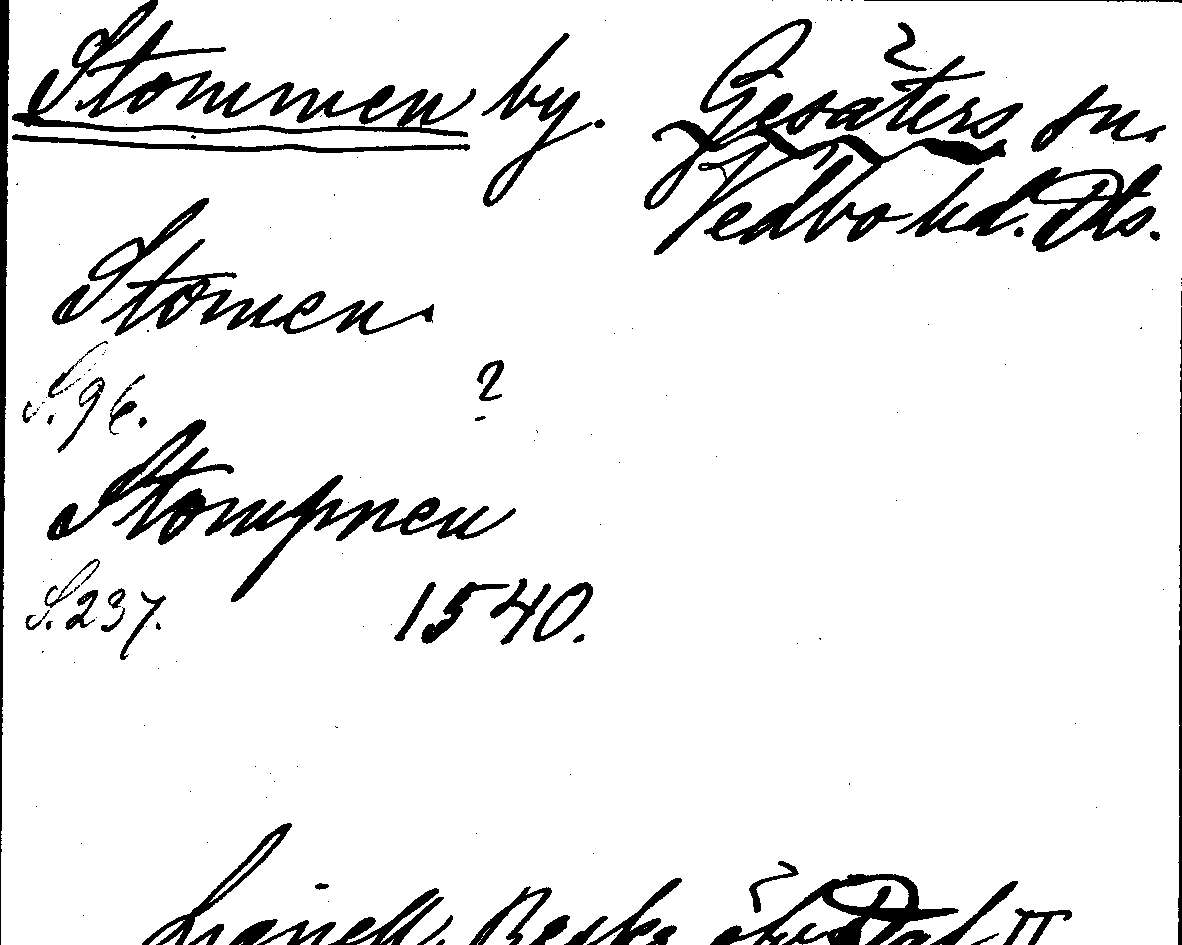 Stommen by. Gesäters sn.
Vedbo hd. Dls.
Stomen.
S. 96. ?
Stompnen
S. 237. 1540.
Lignell, Beskr. öfver Dal II